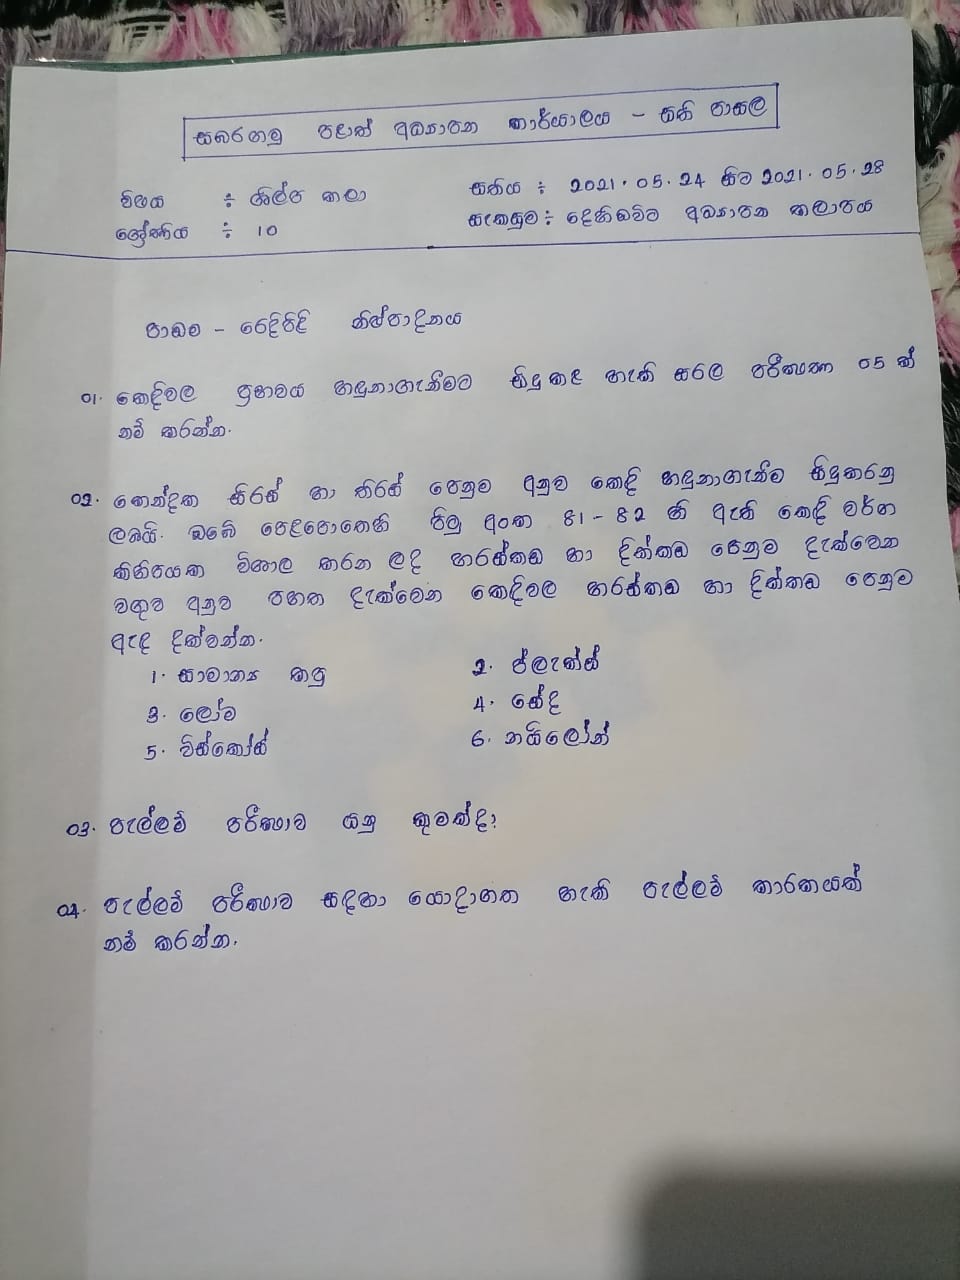 සබරගමු පළාත් අධ්‍යාපන කාර්යාලය - සති පාසල
විෂය ÷ ශිල්ප කලා
සතිය ÷ 2021.05.24 සිට 2021.05.28
ශ්‍රේණිය ÷ 10
සැකසුම ÷ දෙහිඕවිට අධ්‍යාපන කලාපය
පාඩම - රෙදිපිළි නිෂ්පාදනය
01. කෙඳිවල ප්‍රභවය හඳුනාගැනීමට සිදු කළ හැකි සරල පරීක්ෂණ 05 ක්
නම් කරන්න.
02. කෙන්දක සිරස් හා තිරස් පෙනුම අනුව කෙඳි හඳුනාගැනීම සිදුකරනු
ලබයි. ඔබේ පෙළපොතෙහි පිටු අංක 81 - 82 හි ඇති කෙඳි වර්ග
කිහිපයක විශාල කරන ලද හරස්කඩ හා දික්කඩ පෙනුම දැක්වෙන
වගුව අනුව පහත දැක්වෙන කෙඳිවල හරස්කඩ හා දික්කඩ පෙනුම
ඇඳ දක්වන්න.
1. සාමාන්‍ය කපු
2. ප්ලැන්ස්
3. ලෝම
4. සේද
5. විස්කෝස්
6. නයිලෝන්
03. පැල්ලම් පරීක්ෂාව යනු කුමක්ද?
04. පැල්ලම් පරීක්ෂාව සඳහා යොදාගත හැකි පැල්ලම් කාරකයක්
නම් කරන්න.